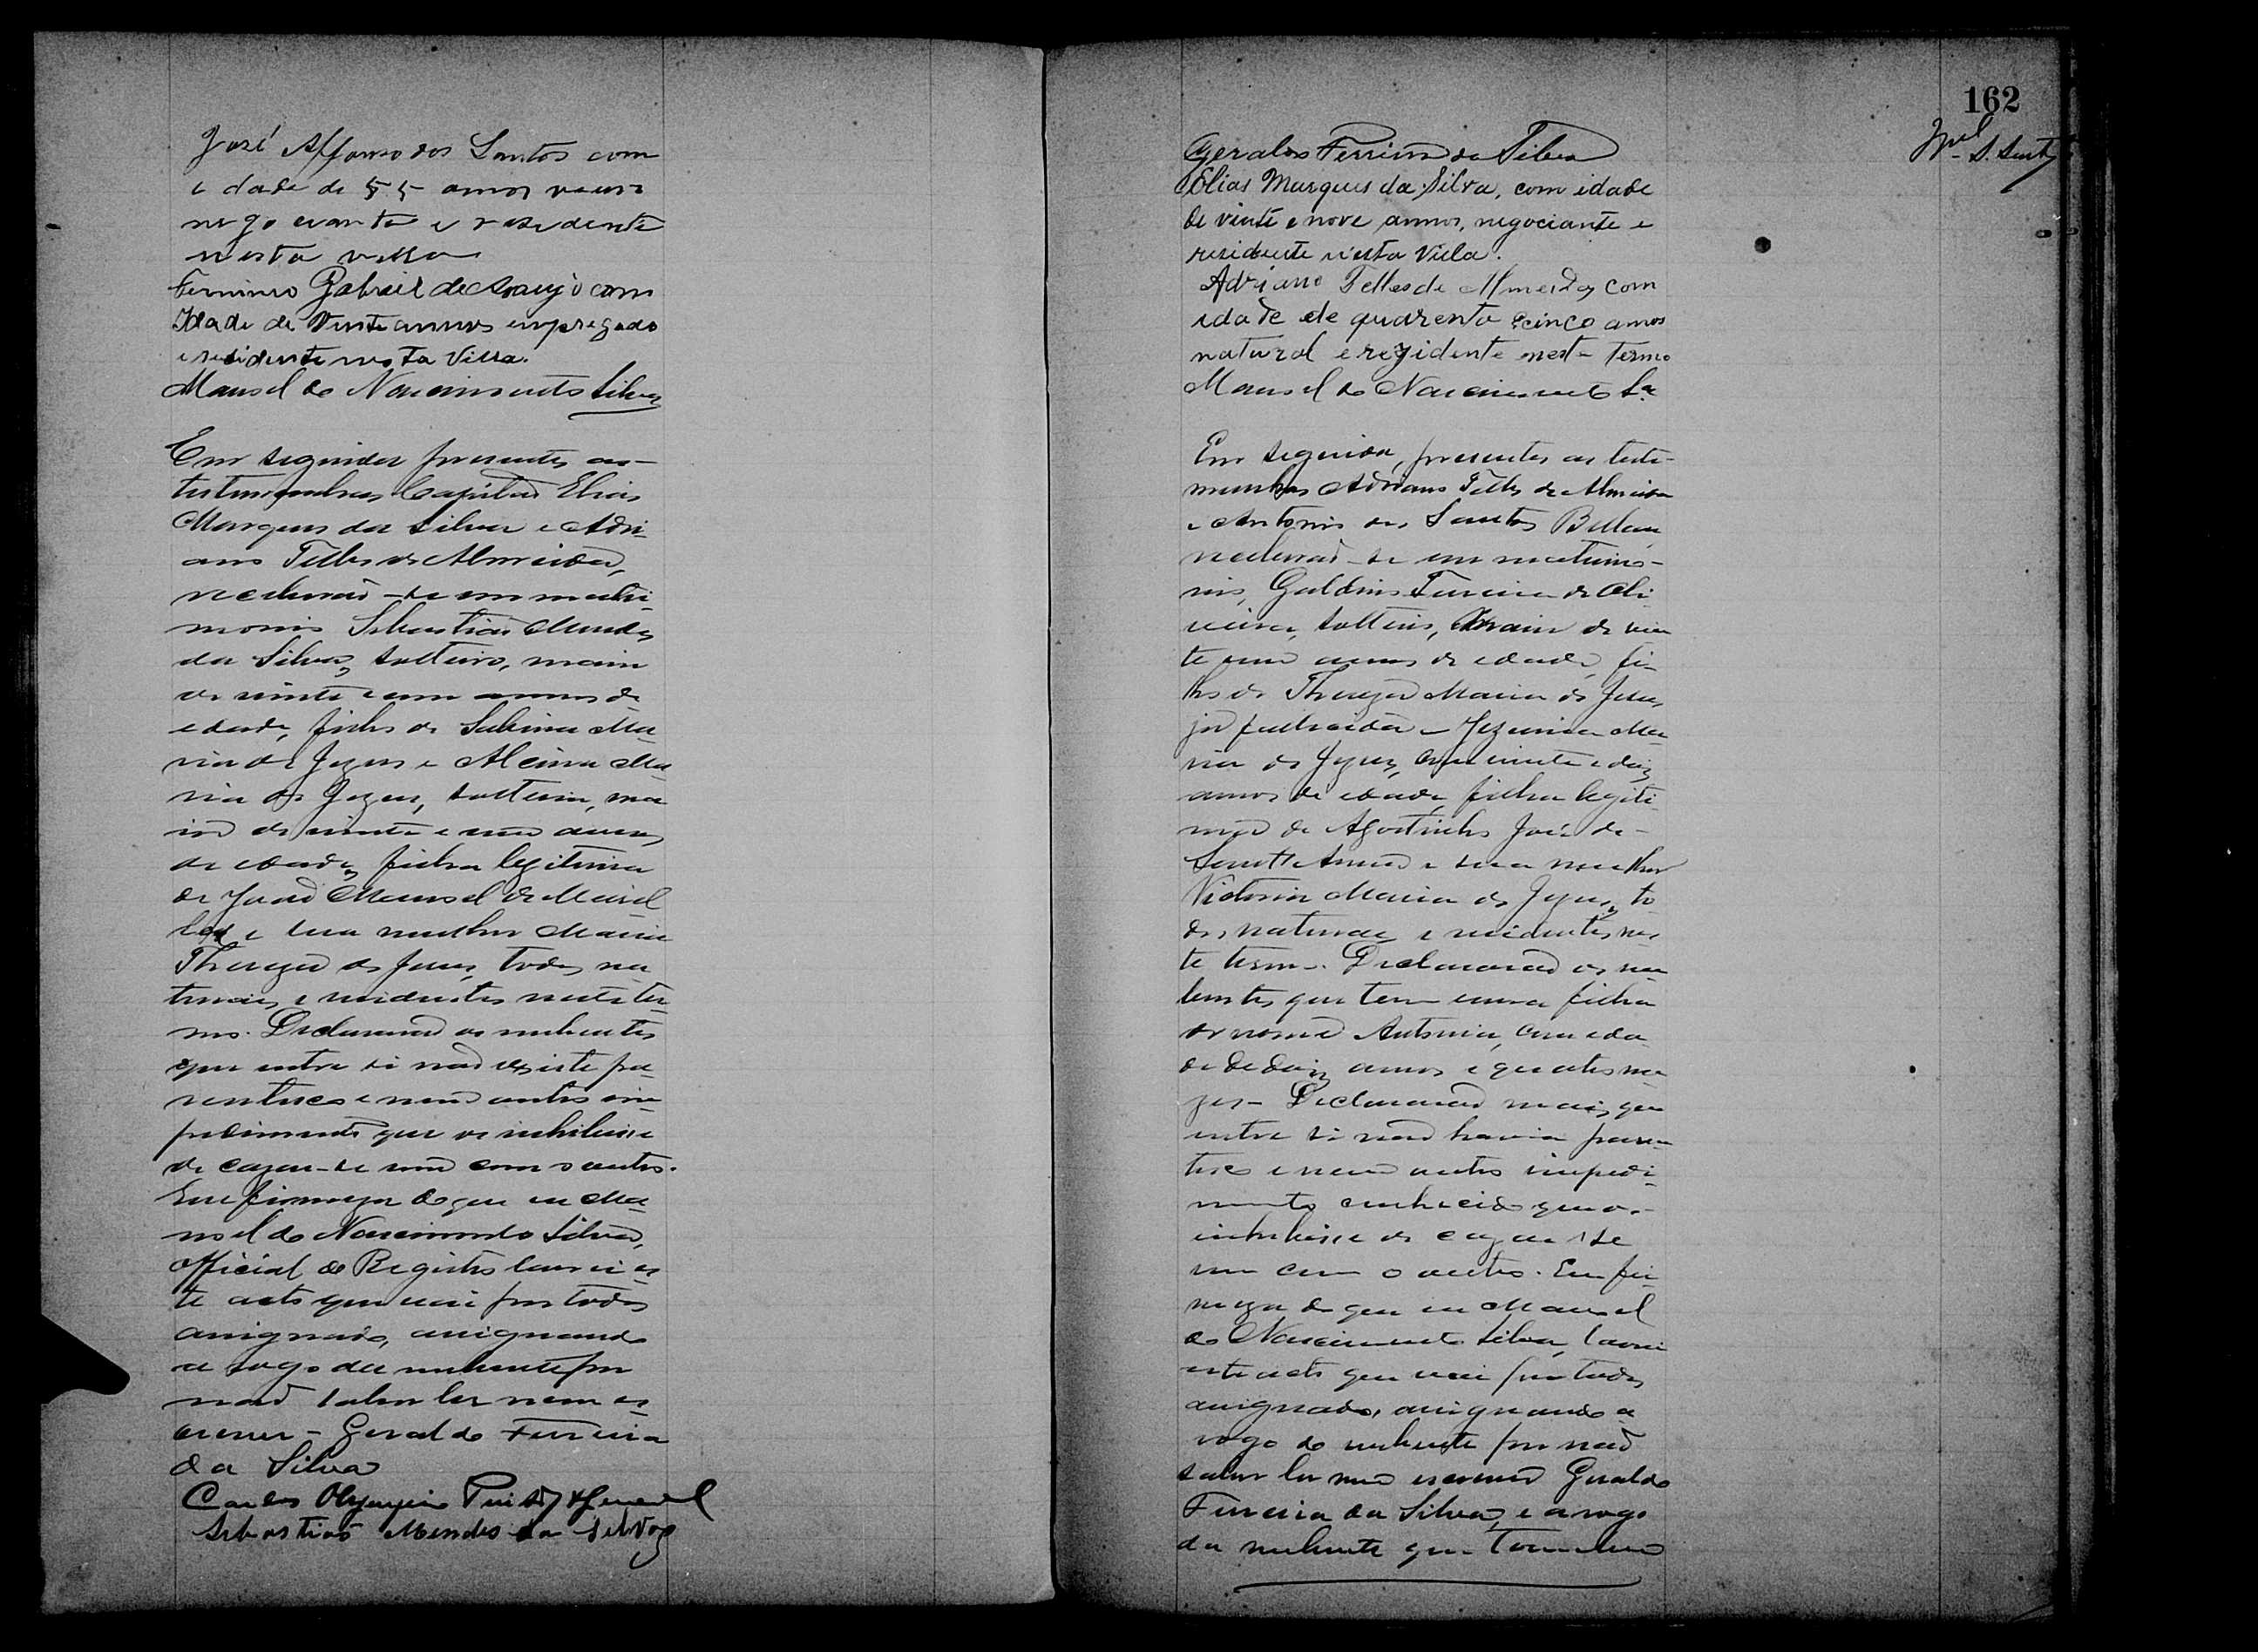 José Affonso dos Santos com
idade de 55 annos viuvo
negociante e residente
nesta villa
Firmino Gabriel de Araujo com
Idade de Vinte annos empregado
e residente nesta Villa.
Manoel do Nascimento Silva
Em seguida presentes as
testemunhas Capitão Elias
Marques da Silva e Adri-
ano Telles de Almeida,
receberão-se em matri-
monio Sebastião Mendes
da Silva, solteiro, maior
de vinte e um annos de
edade, filho de Sabina Ma-
ria de Jezus e Alcina Ma-
ria de Jezus, solteira, ma-
ior de vinte e um annos
de edade, filha legitima
de João Manoel de
e sua mulher Maria
Thereza de Jesus, todos na-
turaes e residentes neste ter-
mo. Declararão os nubentes
que entre si não existe pa-
rentesco e nem outro im-
pedimento que os inhibisse
de cazar-se um com o outro.
Em firmeza do que eu Ma-
noel do Nascimento Silva,
official do Registro lavrei es-
te acto que vai por todos
assignado, assignando
a rogo da nubente por
não saber ler nem es-
crever - Geraldo Ferreira
da Silva
Carlos Olympio
Sebastião Mendes da Silva
162
Geraldo Ferreira da Silva
Elias Marques da Silva, com idade
de vinte e nove annos, negociante e
residente n'esta Villa.
Adriano Telles de Almeida com
idade de quarenta e cinco annos
natural e rezidente neste termo
Manoel do Nascimento Sa
Em seguida, presentes as teste-
munhas Adriano Telles de Almeida
e Antonio dos Santos
receberão-se em matrimo-
nio, Galdino Ferreira de Oli-
veira, solteiro, maior de vin-
te um annos de edade, fi-
lho de Thereza Maria de Jesus,
já fallecida e Maria
de Jezus, com vinte e dois
annos de edade, filha legiti-
ma de Agostinho José de
Sant'Anna e sua mulher
Victoria Maria de Jezus, to-
dos naturaes e residentes nes-
te termo. Declararão os nu-
bentes que tem uma filha
de nome Antonia, com eda-
de de dois annos e quatro me-
zes - Declararão mais que
entre si não havia paren-
tesco e nem outro impedi-
mento conhecido que os
inhibisse de cazar-se
um com o outro. Em fir-
meza do que eu Manoel
do Nascimento Silva, lavrei
este acto que vai por todos
assignado, assignando a
rogo do nubente por não
saber ler nem escrever Geraldo
Ferreira da Silva, e a rogo
da nubente que tambem